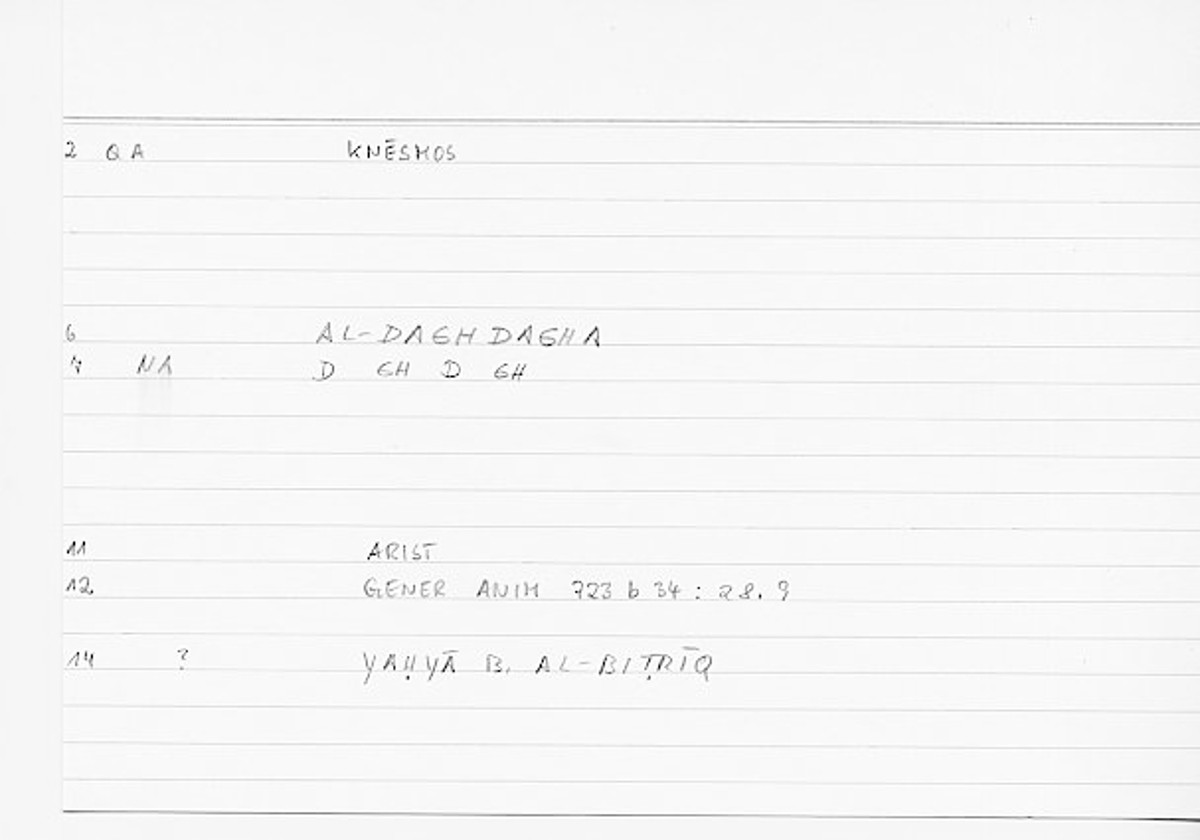 2 QA KNĒSMOS
6 AL-DAGHDAGHA
7 NA D GH D GH
11 ARIST
12. GENER ANIM 723 b 34 : 28.9
14 ? YAḤYĀ B. AL-BIṬRĪQ